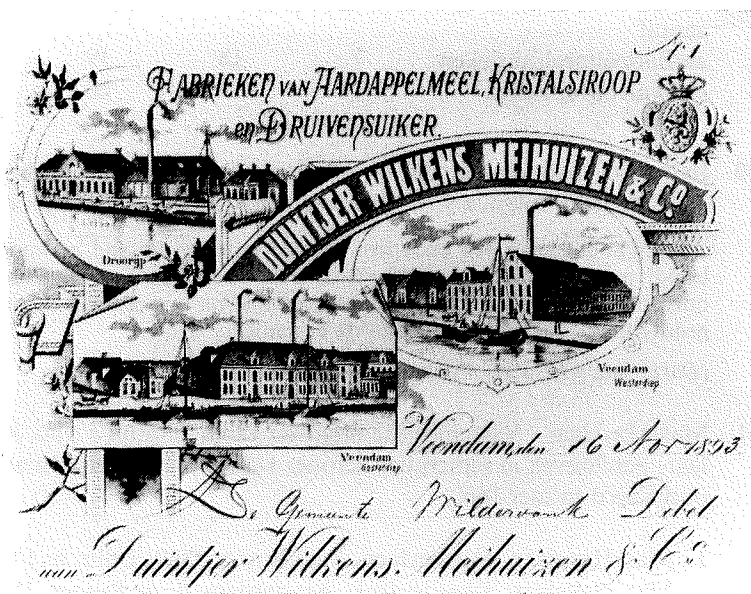 No 1
FABRIEKEN VAN AARDAPPELMEEL, KRISTALSIROOP
en DRUIVENSUIKER.
DUINTJER WILKENS MEIHUIZEN & Co
Dronrijp
Veendam
Westerdiep
Veendam
Oosterdiep
Veendam, den 16 Nov 1893
De Gemeente Wildervank Debet
aan Duintjer Wilkens. Meihuizen & Co